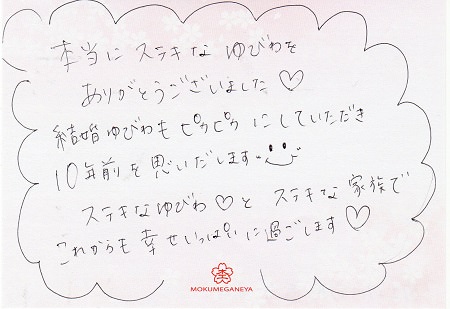 本当に ステキな ゆびわを
ありがとうございました♡
結婚ゆびわも ピカピカ にしていただき
10年前を思いだします
ステキなゆびわ♡と ステキな家族で
これからも 幸せいっぱいに過ごします♡
MOKUMEGANEYA